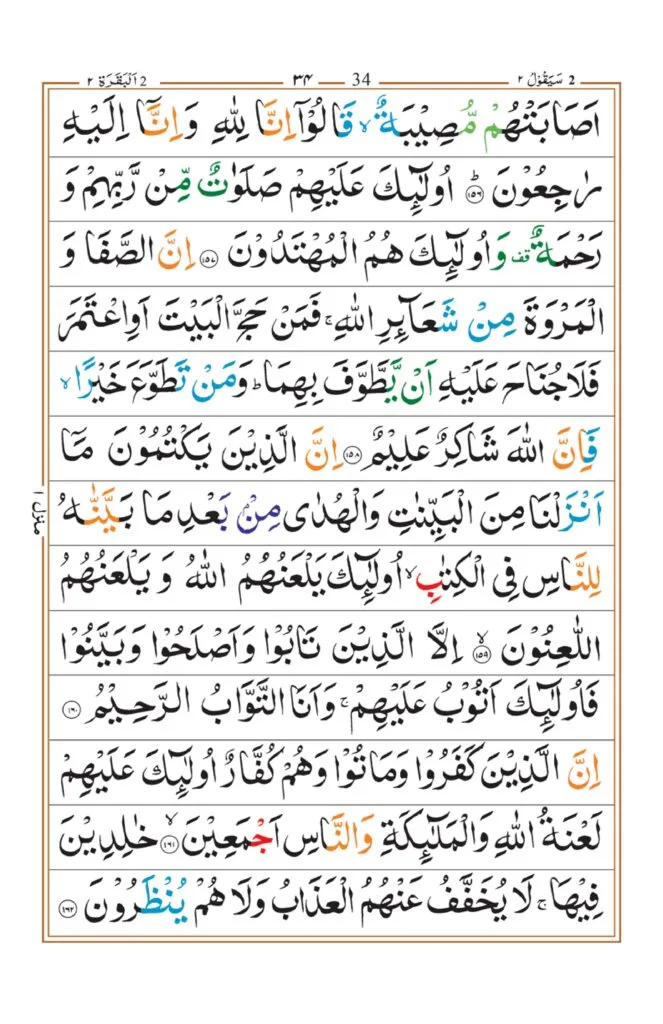 2 سَيَقُوۡلُ ٢ 34 ٣۴ 2 اَلۡبَقَرَة ٢
اَصَابَتۡهُمۡ مُّصِيۡبَةٌ ۙ قَالُوۡٓا اِنَّا لِلّٰهِ وَاِنَّآ اِلَيۡهِ
رٰجِعُوۡنَ ؕ‏ ﴿۱۵۶﴾ اُولٰٓئِكَ عَلَيۡهِمۡ صَلَوٰتٌ مِّنۡ رَّبِّهِمۡ وَ
رَحۡمَةٌ قف وَاُولٰٓئِكَ هُمُ الۡمُهۡتَدُوۡنَ ﴿۱۵۷﴾ اِنَّ الصَّفَا وَ
الۡمَرۡوَةَ مِنۡ شَعَآئِرِ اللّٰهِ ۚ فَمَنۡ حَجَّ الۡبَيۡتَ اَوِ اعۡتَمَرَ
فَلَا جُنَاحَ عَلَيۡهِ اَنۡ يَّطَّوَّفَ بِهِمَا ؕ وَمَنۡ تَطَوَّعَ خَيۡرًا ۙ
فَاِنَّ اللّٰهَ شَاكِرٌ عَلِيۡمٌ ﴿۱۵۸﴾ اِنَّ الَّذِيۡنَ يَكۡتُمُوۡنَ مَآ
اَنۡزَلۡنَا مِنَ الۡبَيِّنٰتِ وَالۡهُدٰى مِنۡۢ بَعۡدِ مَا بَيَّنّٰهُ
لِلنَّاسِ فِى الۡكِتٰبِ ۙ اُولٰٓئِكَ يَلۡعَنُهُمُ اللّٰهُ وَ يَلۡعَنُهُمُ
اللّٰعِنُوۡنَ ۙ ﴿۱۵۹﴾ اِلَّا الَّذِيۡنَ تَابُوۡا وَاَصۡلَحُوۡا وَبَيَّنُوۡا
فَاُولٰٓئِكَ اَتُوۡبُ عَلَيۡهِمۡ ۚ وَاَنَا التَّوَّابُ الرَّحِيۡمُ ﴿۱۶۰﴾
اِنَّ الَّذِيۡنَ كَفَرُوۡا وَمَاتُوۡا وَهُمۡ كُفَّارٌ اُولٰٓئِكَ عَلَيۡهِمۡ
لَعۡنَةُ اللّٰهِ وَالۡمَلٰٓئِكَةِ وَالنَّاسِ اَجۡمَعِيۡنَ ۙ ﴿۱۶۱﴾ خٰلِدِيۡنَ
فِيۡهَا ۚ لَا يُخَفَّفُ عَنۡهُمُ الۡعَذَابُ وَلَا هُمۡ يُنۡظَرُوۡنَ ﴿۱۶۲﴾
منزل ١